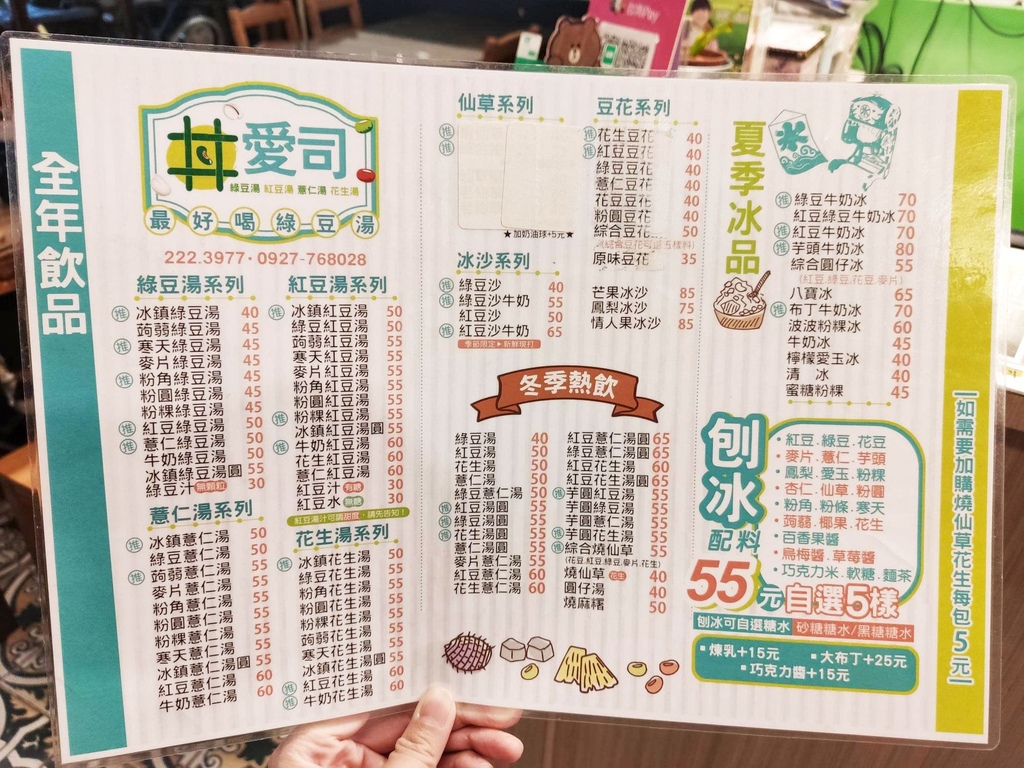 全年飲品
井愛司
綠豆湯 紅豆湯 薏仁湯 花生湯
最好喝綠豆湯
222.3977·0927-768028
綠豆湯系列
推 冰鎮綠豆湯 40
蒟蒻綠豆湯 45
推 寒天綠豆湯 45
麥片綠豆湯 45
推 粉角綠豆湯 45
粉圓綠豆湯 45
粉粿綠豆湯 45
推 紅豆綠豆湯 50
推 薏仁綠豆湯 50
牛奶綠豆湯 50
冰鎮綠豆湯圓 55
綠豆汁 無顆粒 30
薏仁湯系列
推 冰鎮薏仁湯 50
綠豆薏仁湯 50
推 蒟蒻薏仁湯 55
麥片薏仁湯 55
粉角薏仁湯 55
粉圓薏仁湯 55
粉粿薏仁湯 55
寒天薏仁湯 55
冰鎮薏仁湯圓 55
紅豆薏仁湯 60
牛奶薏仁湯 60
紅豆湯系列
推 冰鎮紅豆湯 50
綠豆紅豆湯 50
蒟蒻紅豆湯 55
寒天紅豆湯 55
麥片紅豆湯 55
粉角紅豆湯 55
粉圓紅豆湯 55
推 粉粿紅豆湯 55
冰鎮紅豆湯圓 55
推 牛奶紅豆湯 60
花生紅豆湯 60
薏仁紅豆湯 60
紅豆汁 有糖 30
紅豆水 無糖 30
紅豆湯汁可調甜度，請先告知！
花生湯系列
推 冰鎮花生湯 50
綠豆花生湯 50
麥片花生湯 55
粉角花生湯 55
粉圓花生湯 55
推 粉粿花生湯 55
蒟蒻花生湯 55
寒天花生湯 55
冰鎮花生湯圓 55
推 紅豆花生湯 60
推 牛奶花生湯 60
仙草系列
推
推
★加奶油球+5元★
冰沙系列
推 綠豆沙 40
推 綠豆沙牛奶 55
紅豆沙 50
推 紅豆沙牛奶 65
季節限定▶新鮮現打
豆花系列
推 花生豆花 40
推 紅豆豆花 40
綠豆豆花 40
薏仁豆花 40
花豆豆花 40
粉圓豆花 40
綜合豆花 50
原味豆花 35
芒果冰沙 85
鳳梨冰沙 75
情人果冰沙 85
冬季熱飲
綠豆湯 40
紅豆湯 50
花生湯 50
薏仁湯 50
綠豆薏仁湯 50
推 紅豆湯圓 55
推 綠豆湯圓 55
推 花生湯圓 55
薏仁湯圓 55
麥片薏仁湯 55
紅豆薏仁湯 60
花生薏仁湯 60
紅豆薏仁湯圓 65
綠豆薏仁湯圓 65
紅豆花生湯 60
紅豆花生湯圓 65
推 芋圓紅豆湯 55
芋圓綠豆湯 55
推 芋圓薏仁湯 55
推 芋圓花生湯 55
推 綜合燒仙草 55
(花豆.紅豆.綠豆.麥片.花生)
燒仙草 花生 40
圓仔湯 40
燒麻糬 50
夏季冰品
米
推 綠豆牛奶冰 70
紅豆綠豆牛奶冰 70
推 紅豆牛奶冰 70
推 芋頭牛奶冰 80
綜合圓仔冰 55
(紅豆.綠豆.花豆.麥片)
八寶冰 65
推 布丁牛奶冰 70
波波粉粿冰 60
牛奶冰 45
檸檬愛玉冰 40
清 冰 40
蜜糖粉粿 45
刨冰配料
•紅豆.綠豆.花豆
•麥片.薏仁.芋頭
•鳳梨.愛玉.粉粿
•杏仁.仙草.粉圓
•粉角.粉條.寒天
•蒟蒻.椰果.花生
•百香果醬
•烏梅醬.草莓醬
•巧克力米.軟糖.麵茶
55元自選5樣
刨冰可自選糖水 砂糖糖水/黑糖糖水
▪煉乳+15元 ▪大布丁+25元
▪巧克力醬+15元
如需要加購燒仙草花生每包5元